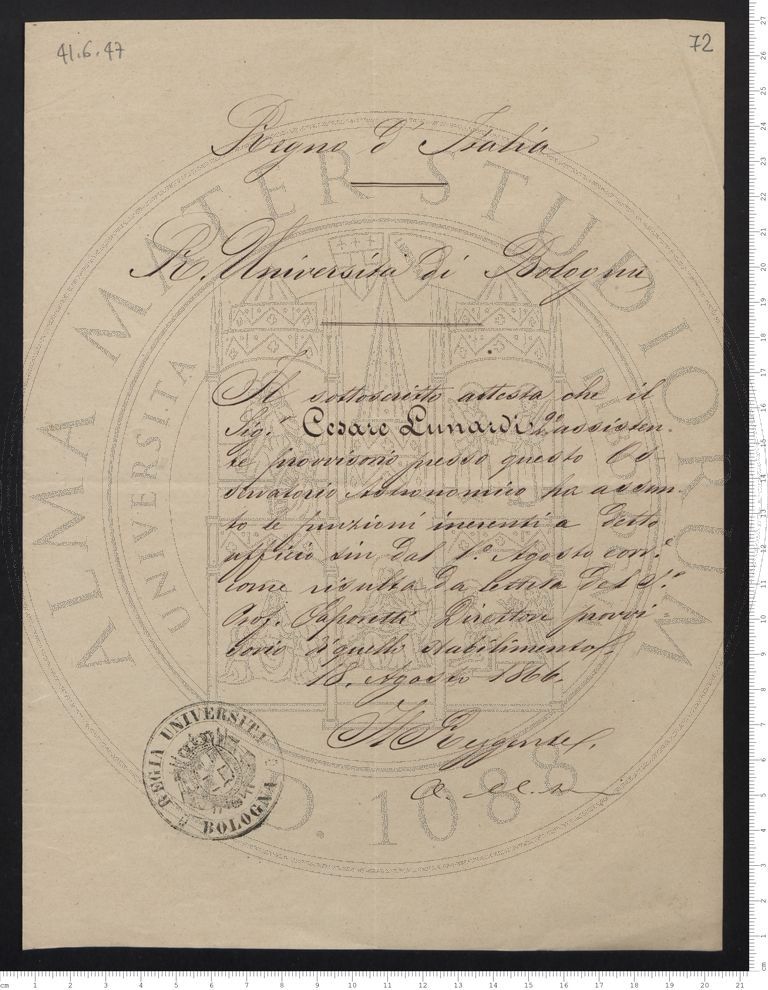 41.6.47
72
Regno d'Italia
R. Università di Bologna
Il sottoscritto attesta che il
Sig.r Cesare Lunardi 2° assisten-
te provvisorio presso questo Os-
servatorio Astronomico ha assun-
to le funzioni inerenti a detto
ufficio sin dal 1.° Agosto corr.e
come risulta da lettera del S.r
Prof. Saporetti Direttore provvi-
sorio di quello stabilimento.
18. Agosto 1866.
Il Reggente
REGIA UNIVERSITÀ
BOLOGNA
ALMA MATER STUDIORUM
A.D. 1088